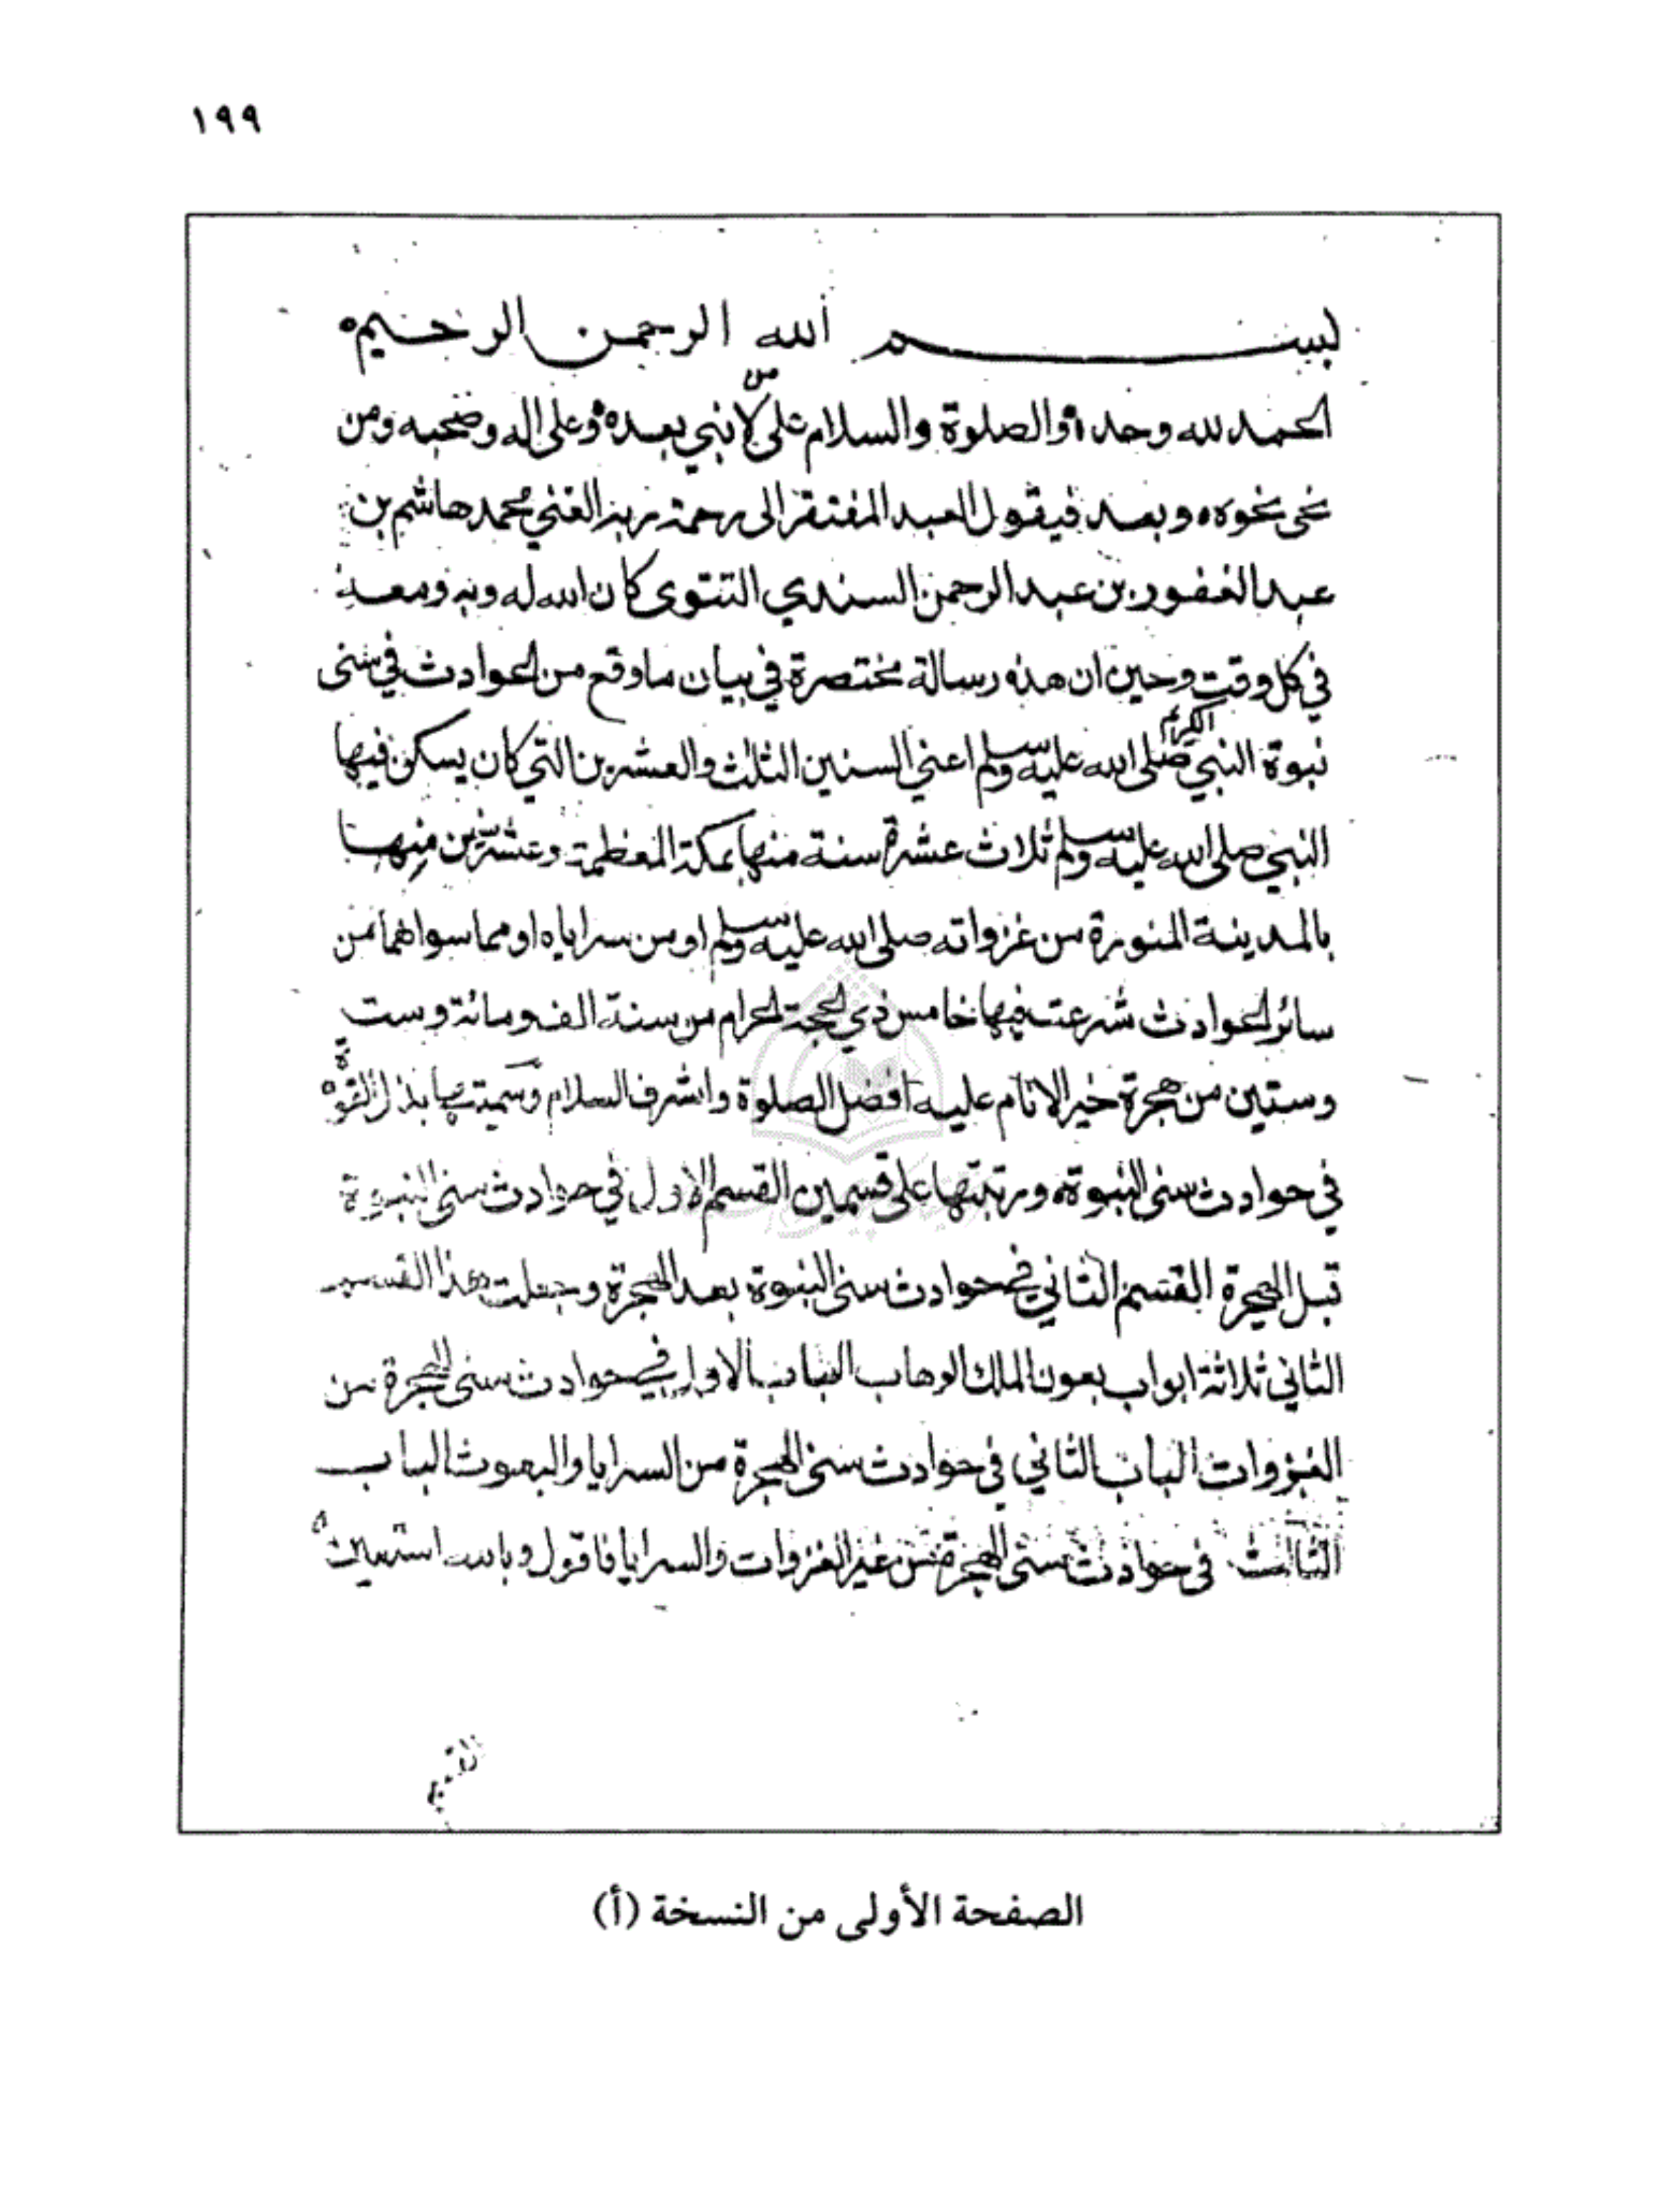 ١٩٩
بسم الله الرحمن الرحيم
الحمد لله وحده والصلوة والسلام على من لا نبي بعده وعلى اله وصحبه ومن
نحى نحوه وبعد فيقول العبد المفتقر الى رحمة ربه الغني محمد هاشم بن
عبد الغفور بن عبد الرحمن السندي التتوى كان الله له وبه ومعه
في كل وقت وحين ان هذه رسالة مختصرة في بيان ما وقع من الحوادث في سنى
نبوة النبي الكريم صلى الله عليه وسلم اعني السنين الثلث والعشرين التي كان يسكن فيها
النبي صلى الله عليه وسلم ثلاث عشرة سنة منها بمكة المعظمة وعشر سنين منها
بالمدينة المنورة من غزواته صلى الله عليه وسلم او من سراياه او مما سواهما من
سائر الحوادث شرعت فيها خامس ذي الحجة الحرام من سنة الف ومائة وست
وستين من هجرة خير الانام عليه افضل الصلوة واشرف السلام وسميتها بذل القوة
في حوادث سنى النبوة ورتبتها على قسمين القسم الاول في حوادث سنى النبوة
قبل الهجرة القسم الثاني في حوادث سنى النبوة بعد الهجرة وجعلت هذا القسم
الثاني ثلاثة ابواب بعون الملك الوهاب الباب الاول في حوادث سنى الهجرة من
الغزوات الباب الثاني في حوادث سنى الهجرة من السرايا والبعوث الباب
الثالث في حوادث سنى الهجرة من غير الغزوات والسرايا فاقول وبالله استعين
الصفحة الأولى من النسخة (أ)